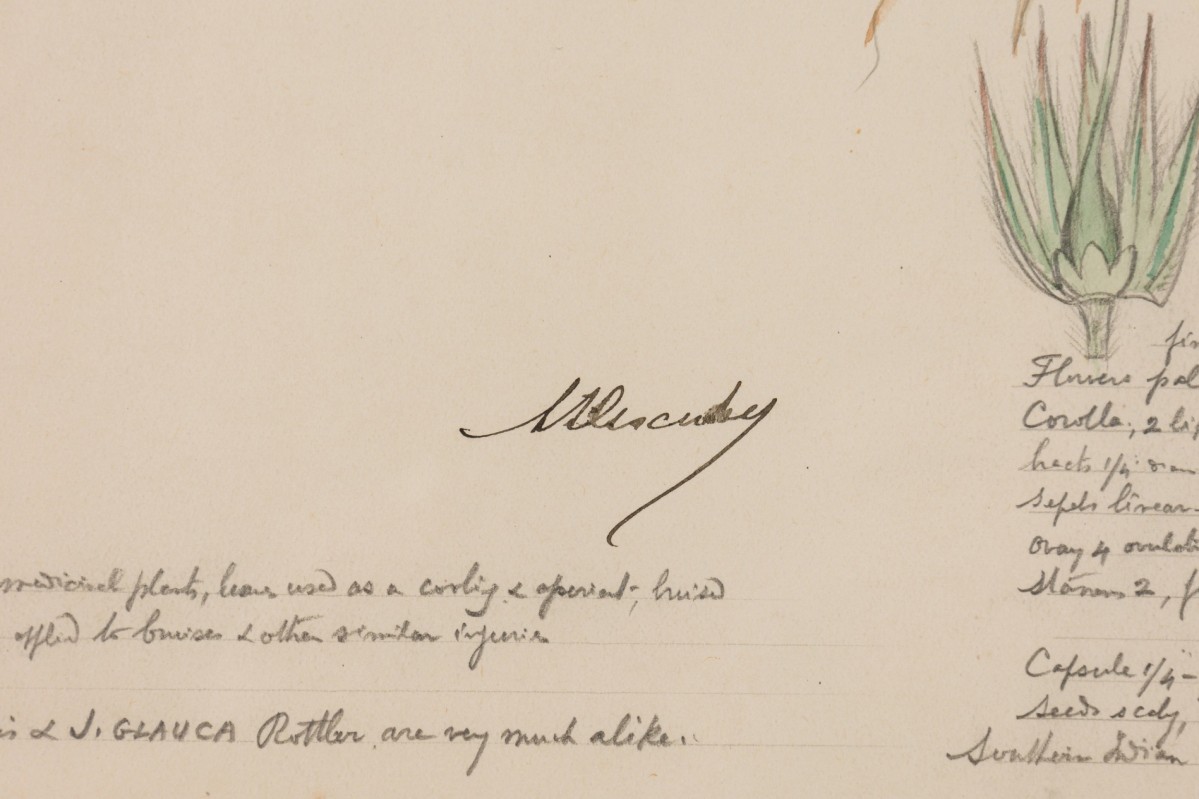 medicinal plants, leaves used as a cooling & aperient; bruised
applied to bruises & other similar injuries
is & J. GLAUCA Rottler are very much alike.
Flowers pal
Corolla, 2 lip
bracts 1/4
sepals linear-
ovary 4
stamens 2,
Capsule 1/4-
seeds scaly,
Southern Indian